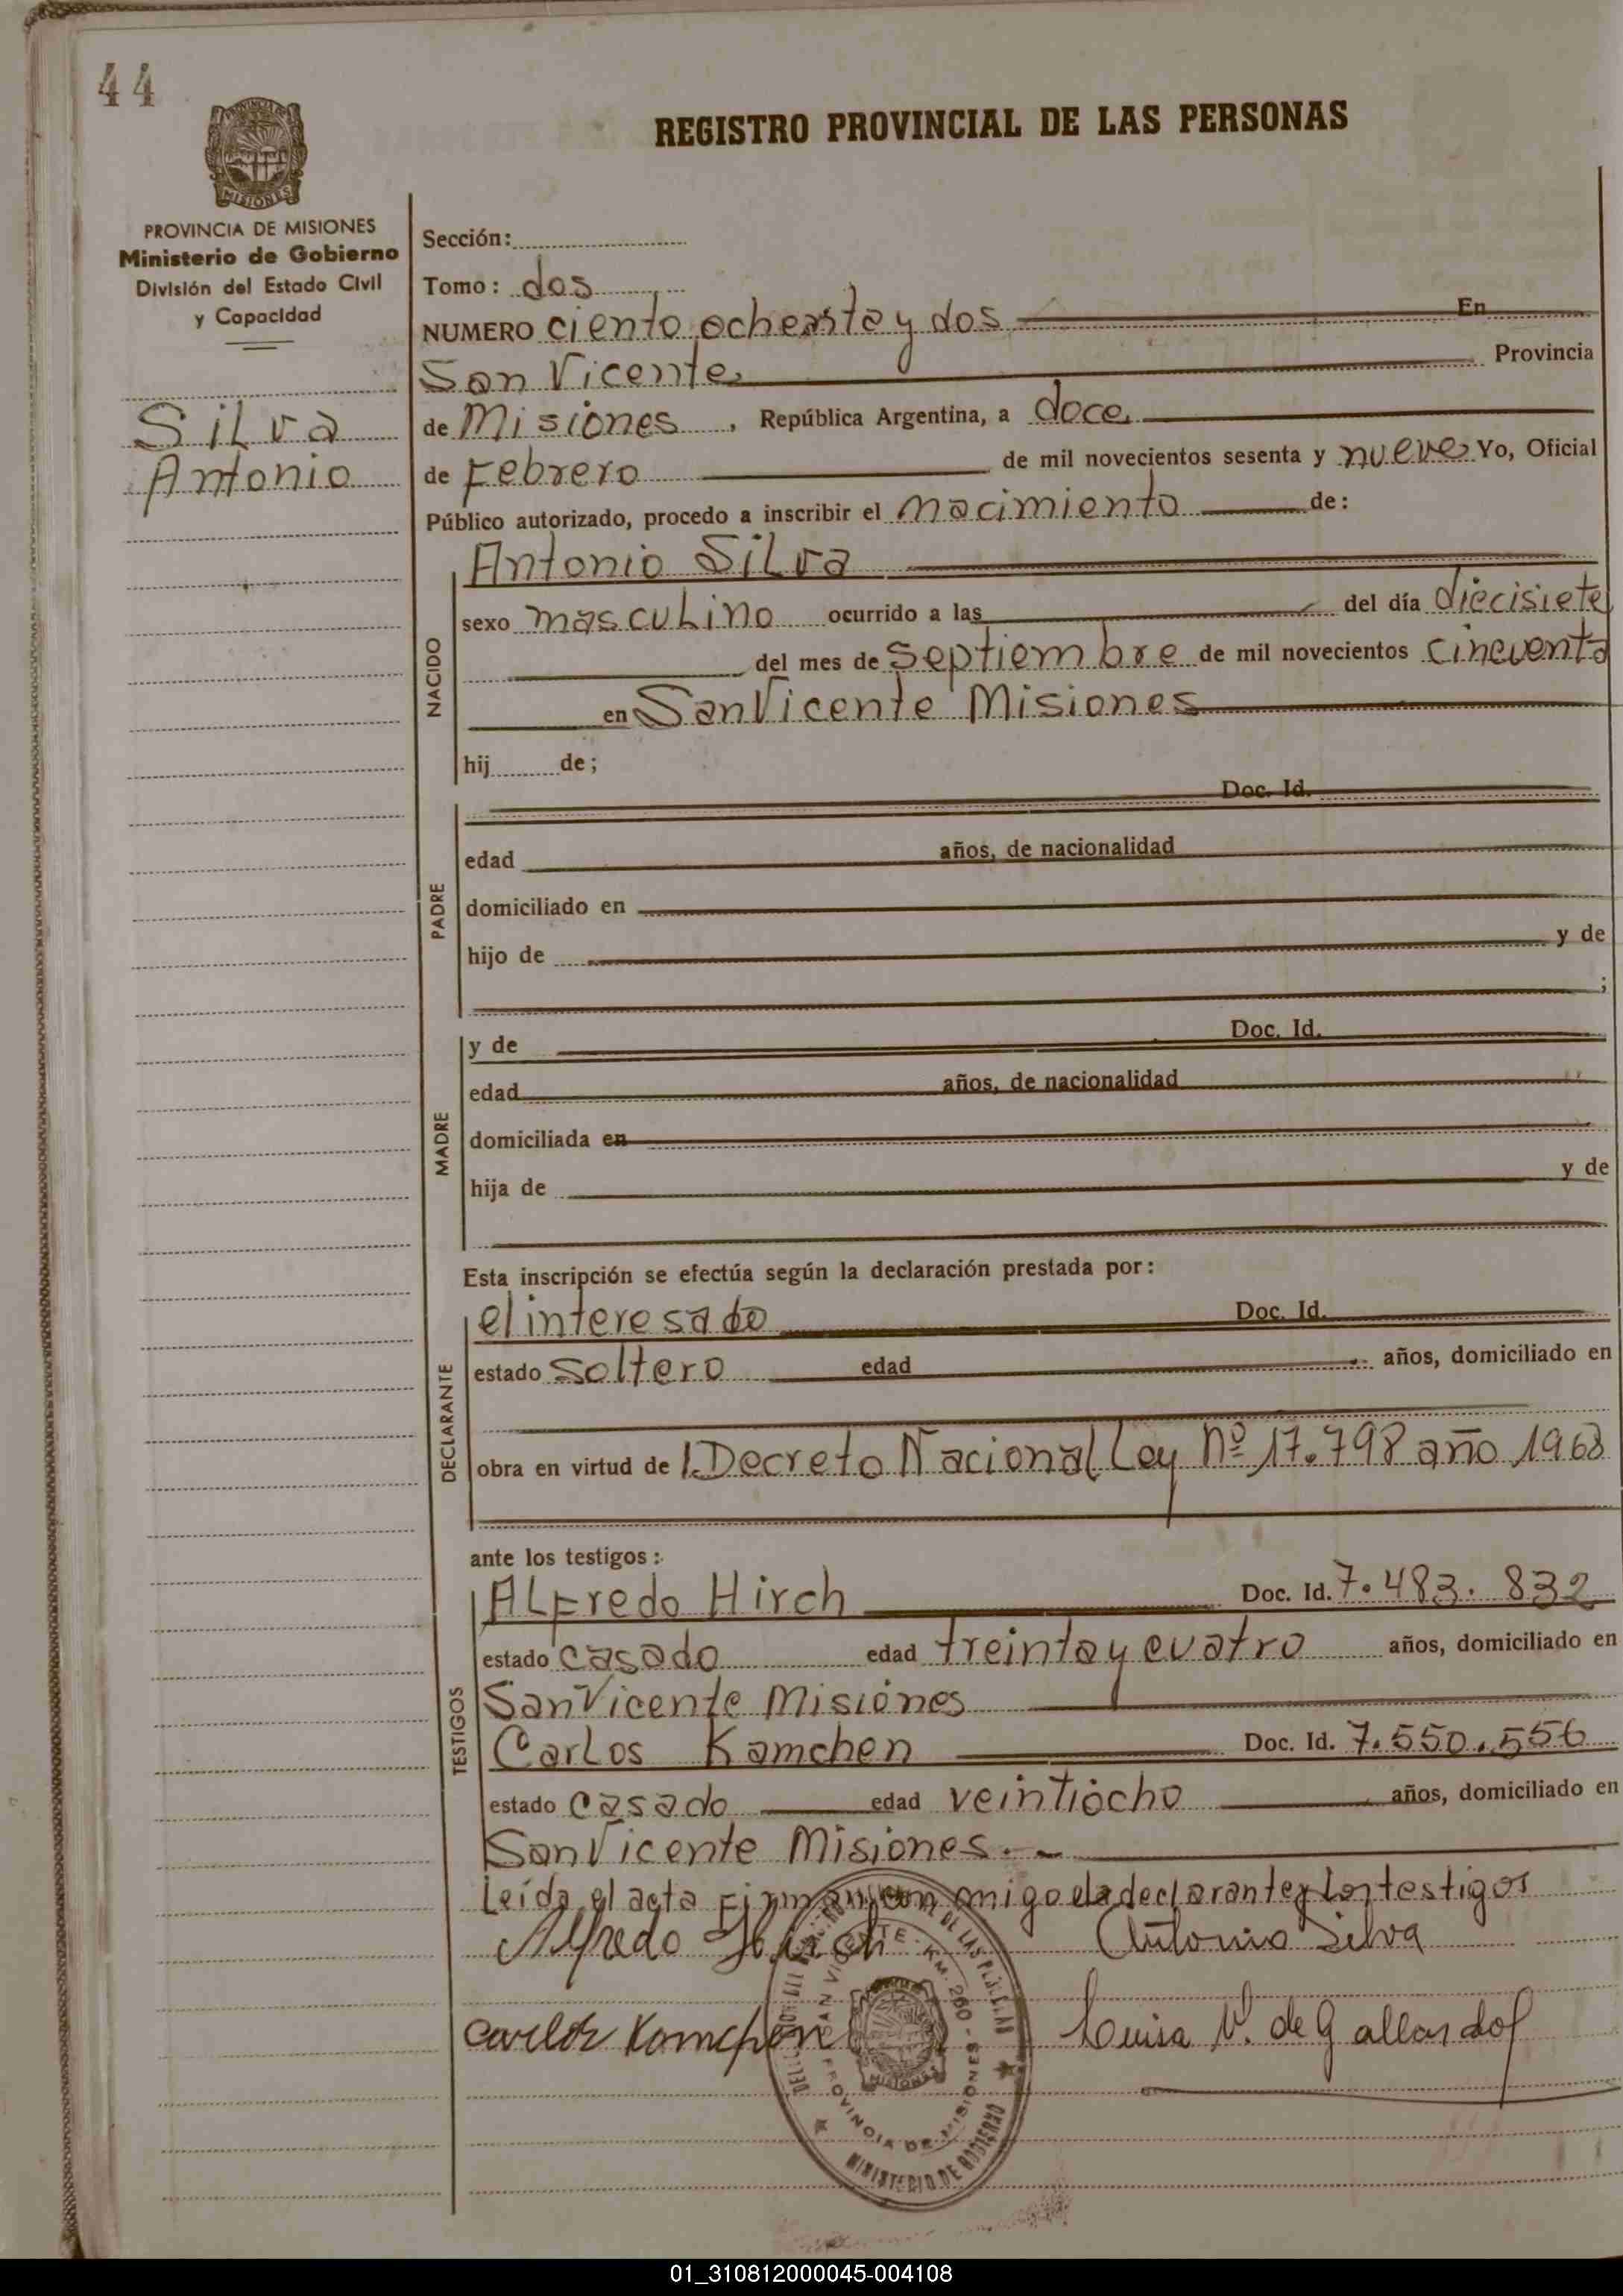 44
REGISTRO PROVINCIAL DE LAS PERSONAS
MISIONES
PROVINCIA DE MISIONES
Ministerio de Gobierno
División del Estado Civil
y Capacidad
Silva
Antonio
Sección:
Tomo: dos
NUMERO ciento ochenta y dos En
San Vicente Provincia
de Misiones, República Argentina, a doce
de Febrero de mil novecientos sesenta y nueve Yo, Oficial
Público autorizado, procedo a inscribir el nacimiento de:
NACIDO
Antonio Silva
sexo masculino ocurrido a las del día diecisiete
del mes de Septiembre de mil novecientos cincuenta
en San Vicente Misiones
hij de;
PADRE
Doc. Id.
edad años, de nacionalidad
domiciliado en
hijo de y de
;
MADRE
y de Doc. Id.
edad años, de nacionalidad
domiciliada en
hija de y de
Esta inscripción se efectúa según la declaración prestada por:
DECLARANTE
el interesado Doc. Id.
estado soltero edad años, domiciliado en
obra en virtud de l Decreto Nacional Ley Nº 17.798 año 1968
ante los testigos:
TESTIGOS
Alfredo Hirch Doc. Id. 7.483.832
estado casado edad treinta y cuatro años, domiciliado en
San Vicente Misiones
Carlos Kamchen Doc. Id. 7.550.556
estado casado edad veintiocho años, domiciliado en
San Vicente Misiones.-
Leída el acta firman con migo el declarante y los testigos
Alfredo Hirch Antonio Silva
Carlos Kamchen Luisa V. de Gallardo
SAN VICENTE - KM. 260 - MISIONES
PROVINCIA DE MISIONES
MINISTERIO DE GOBIERNO
01_310812000045-004108